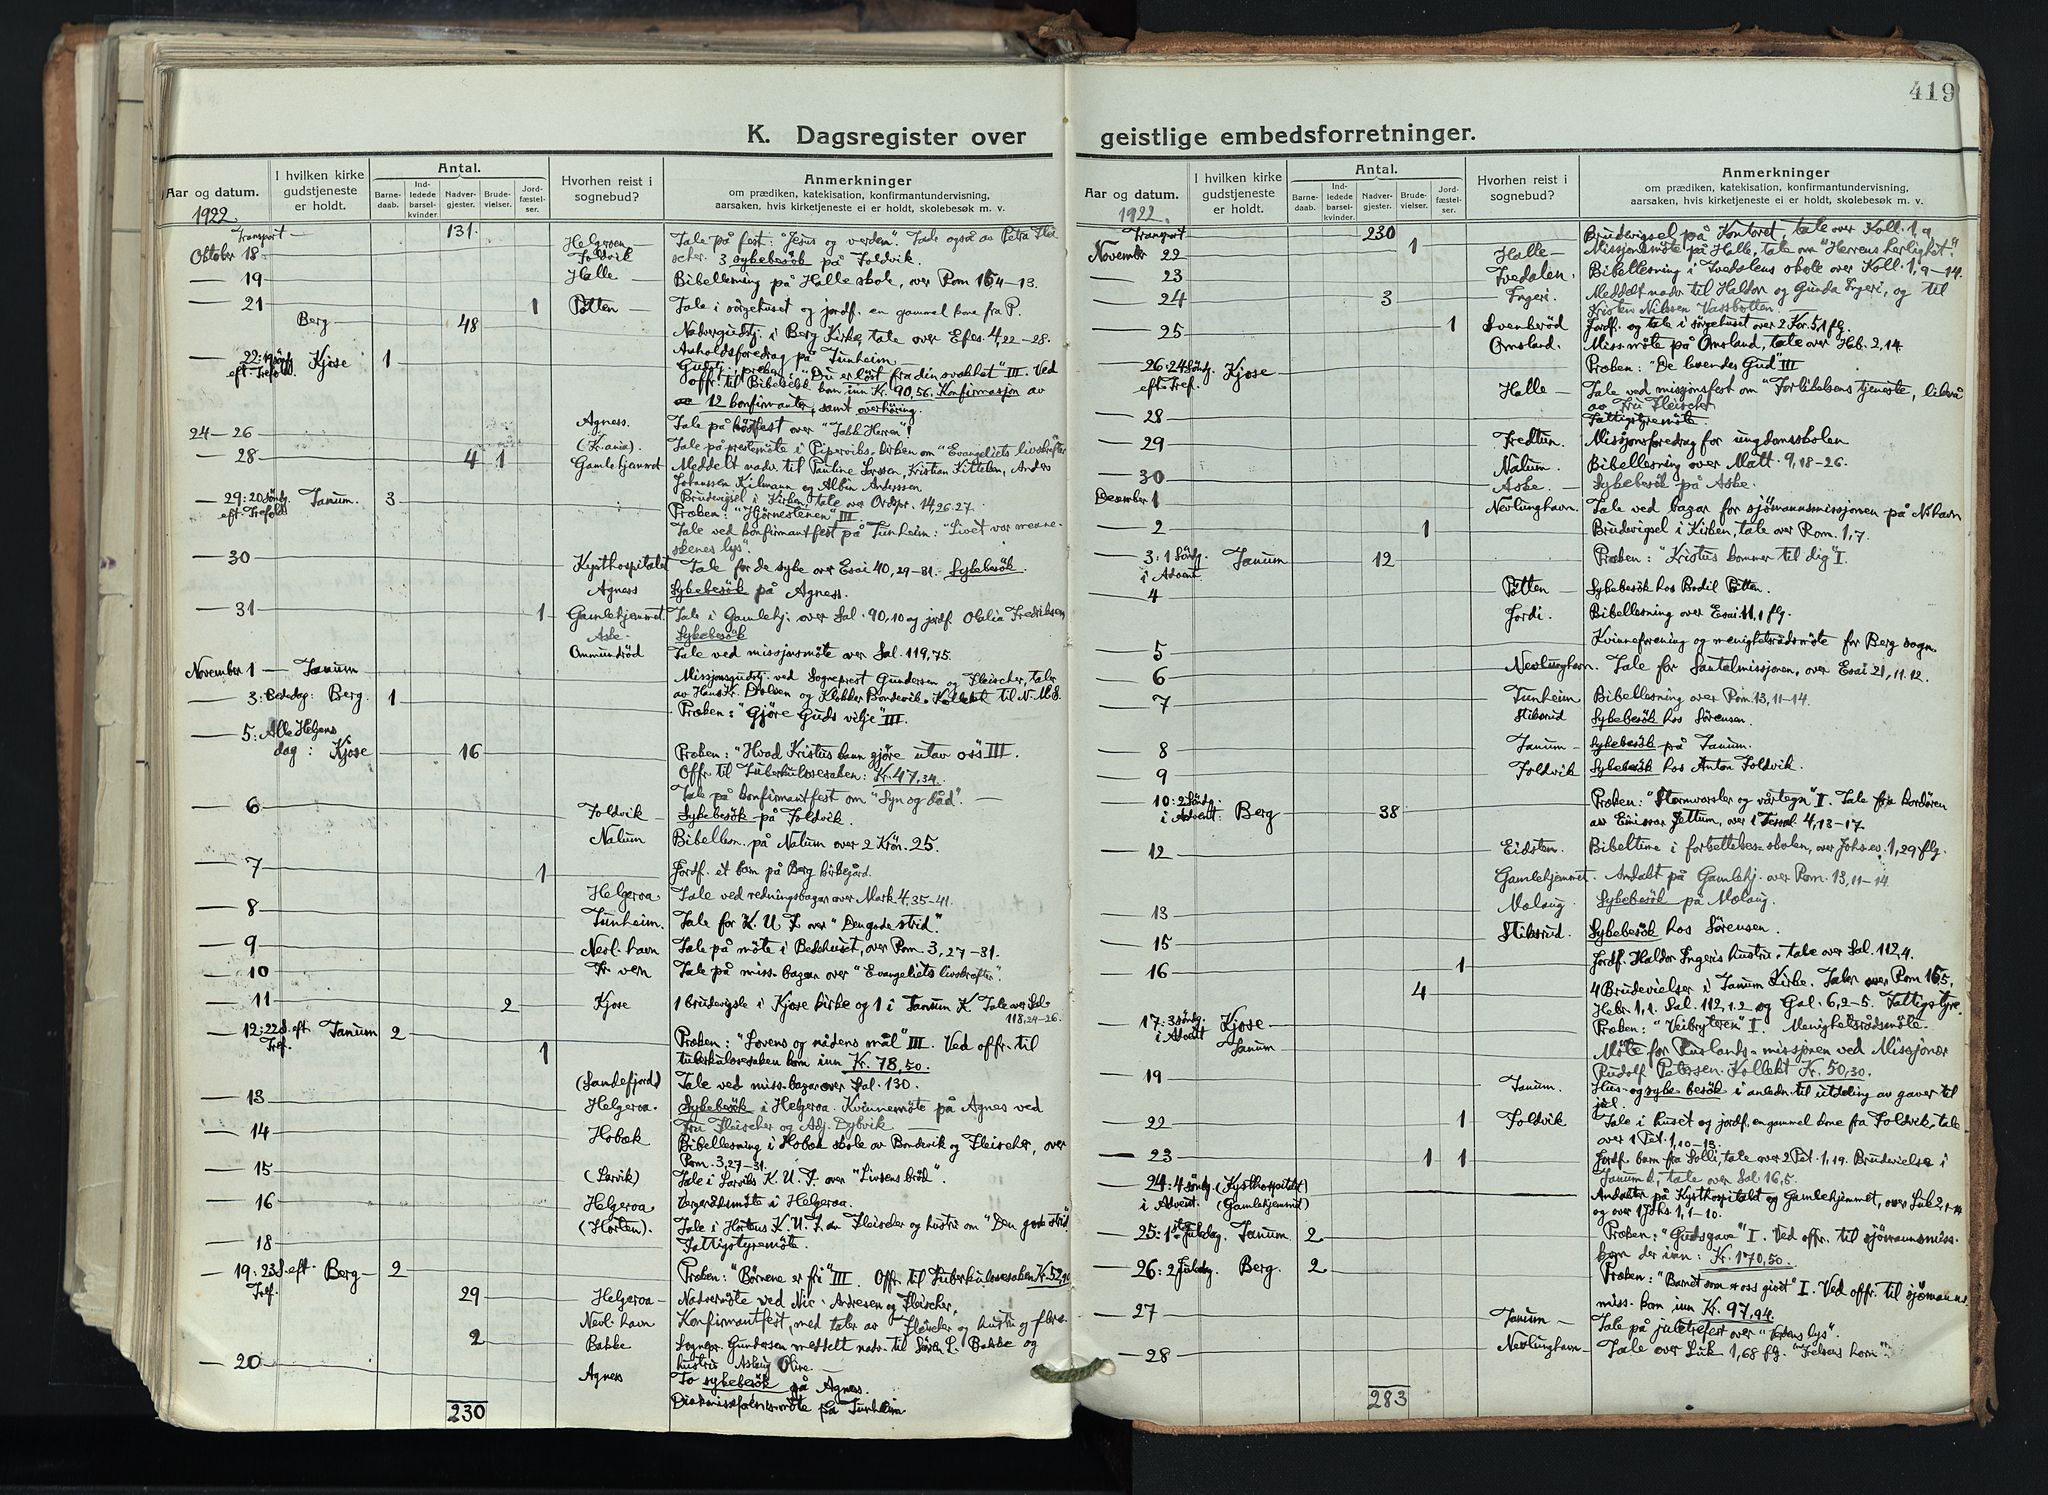 K. Dagsregister over
Aar og datum.
I hvilken kirke gudstjeneste er holdt.
Antal.
Barnedaab.
Indledede barselkvinder.
Nadvergjester.
Brudevielser.
Jordfæstelser.
Hvorhen reist i sognebud?
Anmerkninger
om prædiken, katekisation, konfirmantundervisning,
aarsaken, hvis kirketjeneste ei er holdt, skolebesøk m. v.
1922.
Transport 131.
Oktober 18 Helgeroen Tale på fest: "Jesus og verden". Tale også av Petra Flei
Foldvik scher. 3 sykebesök på Foldvik.
19 Halle Bibellesning på Halle skole, over Rom 15,4–13.
21 1 Pötten Tale i sörgehuset og jordf. en gammel kone fra P.
Berg 48 Nadvergudstj. i Berg Kirke, tale over Efes. 4,22–28.
Avholdsforedrag på Tunheim.
22: 19 Sönd. eft. Trefold. Kjose 1 Gudstj. preken: "Du er löst fra din svakhet" III. Ved
offr. til Bibelselsk. kom inn Kr. 90,56. Konfirmasjon av
12 konfirmanter, samt overhöring.
Agness. Tale på höstfest over "Takk Herren"!
24–26 (Kr.ania). Tale på prestemöte i Pipervikskirken om "Evangeliets livskrefter
28 4 1 Gamlehjemmet Meddelt nadv. til Pauline Larssen, Kristian Kittelsen, Anders
Johanssen Kilmann og Albin Anderssen.
Brudevigsel i Kirken tale over Ordspr. 14,26.27.
29: 20 Sönd. eft. Trefold. Tanum. 3 Præken: "Hjörnestenen" III
Tale ved konfirmantfest på Tunheim: "Livet var menne-
skenes lys".
30 Kysthospitalet Tale for de syke over Esai 40,29–31. Sykebesök.
Agness Sykebesök på Agness.
31 1 Gamlehjemmet. Tale i Gamlehj. over Sal. 90,10 og jordf. Otalia Fredriksen
Aske. Sykebesök
Ommundröd Tale ved missjonsmöte over Sal. 119,75.
November 1 Tanum Missjonsgudstj. ved Sogneprest Gundersen og Fleischer, taler
av Hans Kr. Dolven og Klokker Bondevik. Kollekt til N.M.S.
3: Bededag: Berg 1 Præken: "Gjöre Guds vilje" III.
5: Alle Helgens dag: Kjose 16 Præken: "Hvad Kristus kann gjöre utav oss III.
Offr. til Tuberkulosesaken: Kr. 47,34.
Tale på konfirmantfest om "Syn og dåd".
6 Foldvik Sykebesök på Foldvik.
Nalum Bibellesn. på Nalum over 2 Krön. 25.
7 1 Jordf. et barn på Berg kirkegård.
Helgeroa Tale ved redningsbazar over Mark. 4,35–41.
8 Tunheim. Tale for K. U. F. over "Den gode strid."
9 Nevl. havn Tale på möte i Bedehuset, over Rom. 3,27–31.
10 Fr. vern Tale på miss. bazar over "Evangeliets livskrefter".
11 2 Kjose 1 brudevigsle i Kjose kirke og 1 i Tanum K. Tale over Sal.
118,24–26.
12: 22 S. eft. Tref. Tanum 2 Præken: "Lovens og nådens mål" III. Ved offr. til
1 tuberkulosesaken kom inn Kr. 78,50.
(Sandefjord) Tale ved miss. bazar over Sal. 130.
13 Helgeroa. Sykebesök i Helgeroa. Kvinnemöte på Agnes ved
Fru Fleischer og Adj. Dybvik
14 Hobæk Bibellesning i Hobæk skole av Bondevik og Fleischer, over
Rom. 3,27–31.
15 (Larvik) Tale i Larviks K. U. F. over "Livsens bröd".
16 Helgeroa Vergerådsmöte i Helgeroa.
(Horten). Tale i Hortens K. U. F. av Fleischer og hustru om "Den gode strid
18 Fattigstyremöte.
19: 23 S. eft. Tref. Berg 2 Præken: "Börnene er fri" III. Offr. til Tuberkulosesaken Kr. 52,
29 Helgeroa Nadvermöte ved Nic. Andresen og Fleischer.
Nevl. havn Konfirmantfest, med taler av Fleischer og hustru og flere.
2 Bakke Sognepr. Gundersen meddelt nadv. til Sören L. Bakke og
hustru Aslaug Oline.
20 Agness To sykebesök på Agness.
möte på Tunheim
230
419
geistlige embedsforretninger.
Aar og datum.
I hvilken kirke gudstjeneste er holdt.
Antal.
Barnedaab.
Indledede barselkvinder.
Nadvergjester.
Brudevielser.
Jordfæstelser.
Hvorhen reist i sognebud?
Anmerkninger
om prædiken, katekisation, konfirmantundervisning,
aarsaken, hvis kirketjeneste ei er holdt, skolebesøk m. v.
1922.
Transport 230
November 22 1 Brudevigsel på Kontoret, tale over Koll. 1,9
Halle Missjonsmöte på Halle, tale om "Herrens herlighet."
23 Tvedalen. Bibellesning i Tvedalens skole over Koll. 1,9–14.
24 3 Ingeri. Meddelt nadv. til Haldor og Gunda Ingeri, og til
Kristen Nilssen Vassbotten.
25 1 Svenberöd Jordf. og tale i sörgehuset over 2 Kor. 5,1 flg.
Omsland. Miss. möte på Omsland, tale over Heb. 2,14.
26: 24 Söndg. eft. Tref. Kjose Præken: "De levendes Gud" III
Halle Tale ved missjonsfest om "Forlikelsens tjeneste, likeså
av Fru Fleischer
28 Fattigstyremöte.
29 Fredtun. Missjonsforedrag for ungdomsskolen
Nalum. Bibellesning over Matt. 9,18–26.
30 Aske Sykebesök på Aske.
Desember 1 Nevlunghavn. Tale ved bazar for sjömannsmissjonen på N.havn
2 1 Brudevigsel i Kirken, tale over Rom. 1,7.
3: 1 Söndg. i Advent. Tanum 12 Præken: "Kristus kommer til dig" I.
4 Pötten Sykebesök hos Bodil Pötten.
Jordi. Bibellesning over Esai. 11,1 flg.
5 Kvinneforening og menighetsrådsmöte for Berg sogn.
Nevlunghavn. Tale for Santalmissjonen, over Esai 21,11.12.
6 Tunheim Bibellesning over Rom. 13,11–14.
7 Stiksrud Sykebesök hos Sörensen.
8 Tanum Sykebesök på Tanum.
9 Foldvik Sykebesök hos Anton Foldvik.
10: 2 Söndg. i Advent. Berg 38 Præken: "Stormvarsler og vårtegn" I. Tale fra kordören
av Emissær Jettum, over 1 Tessal. 4,13–17.
12 Eidsten. Bibeltime i fortsettelses-skolen, over Johs. ev. 1,29 flg.
Gamlehjemmet. Andakt på Gamlehj. over Rom. 13,11–14.
13 Molaug Sykebesök på Molaug.
15 Stiksrud. Sykebesök hos Sörensen.
16 1 Jordf. Haldor Ingeris hustru, tale over Sal. 112,4.
4 4 Brudevielser i Tanum Kirke. Taler over Rom. 15,5,
Hebr. 1,1. Sal. 112,1.2 og Gal. 6,2–5. Fattigstyre.
17: 3 söndg. i Advent Kjose Præken: "Veibryteren" I. Menighetsrådsmöte.
Tanum Möte for Ruslands-missjonen ved Missjonær
Rudolf Petersen. Kollekt Kr. 50,30.
19 Tanum. Hus- og syke-besök i anledn. til utdeling av gaver til
jul.
22 1 Foldvik Tale i huset og jordf. en gammel kone fra Foldvik, tale
over 1 Pet. 1,10–15.
23 1 1 Jordf. barn fra Solli, tale over 2 Pet. 1,19. Brudevielse i
Tanum k., tale over Sal. 16,5.
24: 4 söndg. i Advent. (Kysthospitalet) (Gamlehjemmet) Andakter på Kysthospitalet og Gamlehjemmet, over Luk 2,1–14
og over 1 Johs. 1,1–10.
25: 1ste Juledag. Tanum. 2 Præken: "Gudsgave" I. Ved offr. til sjömannsmiss.
kom der inn: Kr. 170,50.
26: 2 Juledg. Berg. 2 Præken: "Barnet som er oss givet" I. Ved offr. til sjömanns.
miss. kom inn Kr. 97,94.
27 Tanum Tale på juletrefest over "Verdens lys".
28 Nevlunghavn Tale over Luk 1,68 flg. "Frelsens horn".
283